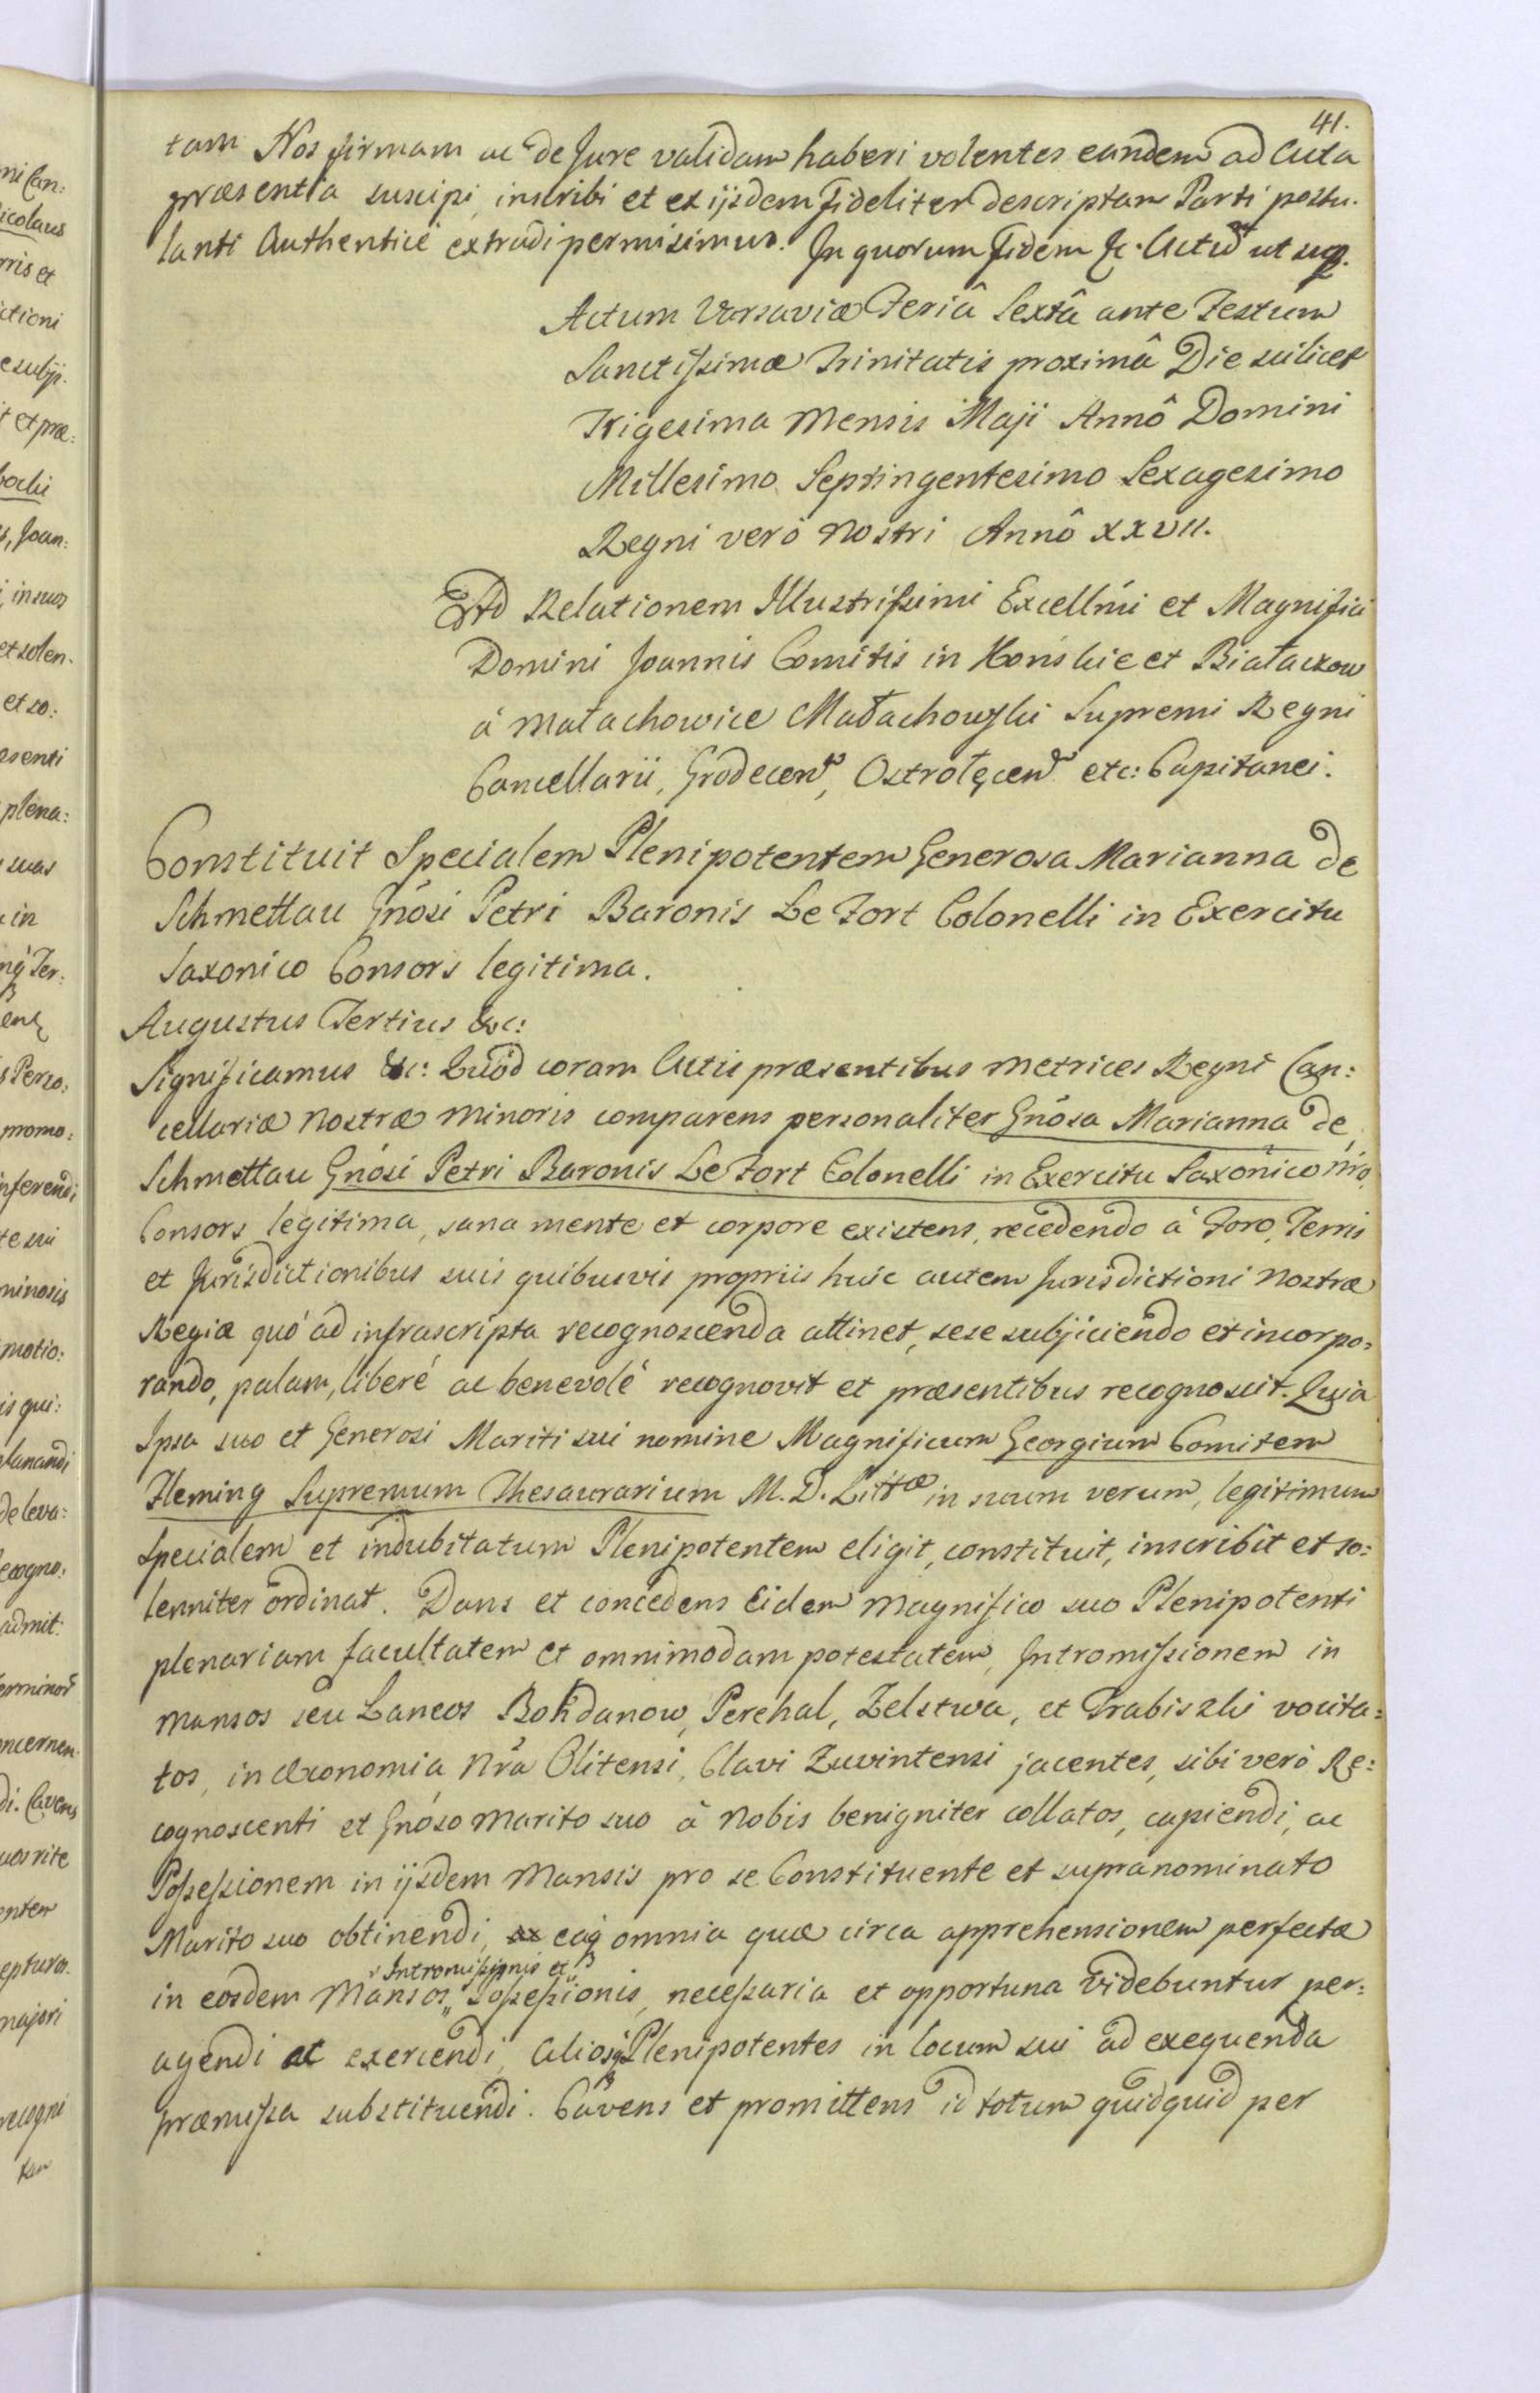 41.
tam Nos firmam ac de Jure validam haberi volentes eandem ad Acta
præsentia suscipi, inscribi et ex ijsdem fideliter descriptam Parti postu-
lanti Authenticè extradi permisimus. In quorum fidem &c. Actũ ut supr.
Actum Varsaviæ Feriâ Sextâ ante Festum
Sanctissimæ Trinitatis proximâ Die scilicet
Trigesima Mensis Maji Annô Domini
Millesimo Septingentesimo Sexagesimo
Regni verò Nostri Annô XXVII.
Ad Relationem Illustrissimi Excellm̃i et Magnifici
Domini Joannis Comitis in Końskie et Białaczow
à Małachowice Małachowski Supremi Regni
Cancellarii, Grodecen, Ostrołęcen etc: Capitanei.
Constituit Specialem Plenipotentem Generosa Marianna de
Schmettau Gnôsi Petri Baronis Le Fort Colonelli in Exercitu
Saxonico Consors legitima.
Augustus Tertius &c:
Significamus &c: Quôd coram Actis præsentibus Metrices Regni Can:
cellariæ Nostræ Minoris comparens personaliter Gnôsa Marianna de
Schmettau Gnôsi Petri Baronis Le Fort Colonelli in Exercitu Saxonico nr̃o
Consors legitima, sana mente et corpore existens, recedendo à Foro, Terris
et Jurisdictionibus suis quibusvis propriis huic autem Jurisdictioni Nostræ
Regiæ quò ad infrascripta recognoscenda attinet, sese subjiciendo et incorpo:
rando, palam, liberè ac benevolè recognovit et præsentibus recognoscit. Quia
Ipsa suo et Generosi Mariti sui nomine Magnificum Georgium Comitem
Fleming Supremum Thesaurarium M. D. Littæ in suum verum, legitimum
specialem et indubitatum Plenipotentem eligit, constituit, inscribit et so:
lenniter ordinat. Dans et concedens Eidem Magnifico suo Plenipotenti
plenariam facultatem et omnimodam potestatem, Intromissionem in
Mansos seu Laneos Bohdanow, Perehal, Zelstwa, et Grabiszki vocita:
tos, in Œconomia Nr̃a Olitensi, Clavi Zuvintensi jacentes, sibi verò Re:
cognoscenti et Gnôso Marito suo à Nobis benigniter collatos, capiendi, ac
Possessionem in ijsdem Mansis pro se Constituente et supranominato
Marito suo obtinendi, eaq̃ omnia quæ circa apprehensionem perfectæ
Intromissionis et
in eosdem Mansos Possessionis, necessaria et opportuna videbuntur per:
agendi ac exercendi, Aliosq̃ Plenipotentes in locum sui ad exequenda
præmissa substituendi. Cavens et promittens id totum quidquid per